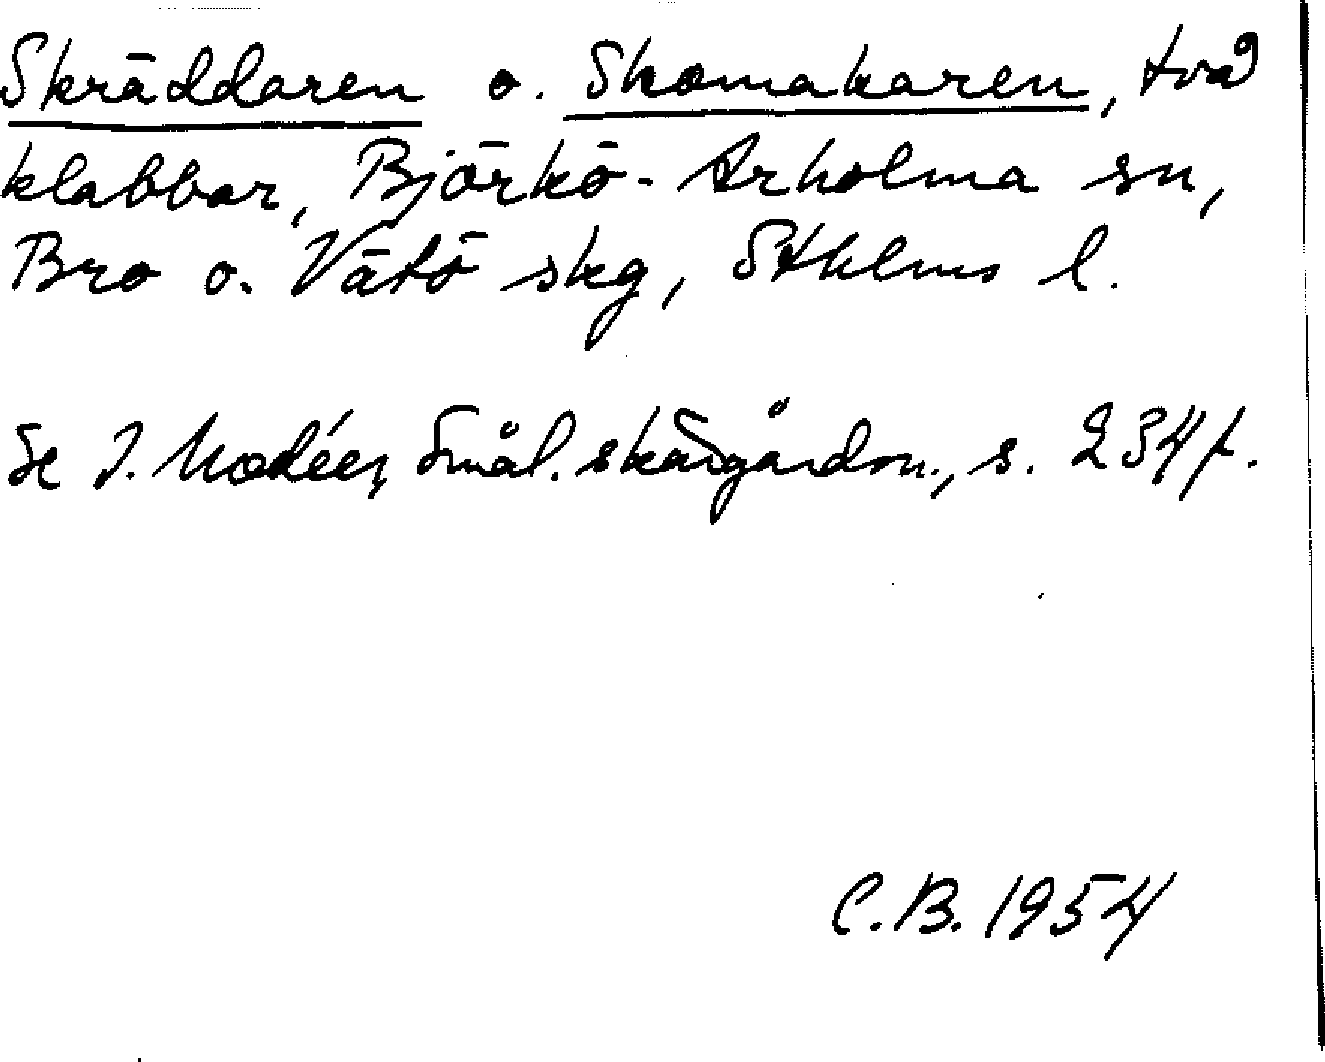 Skräddaren o. Skomakaren, två
klabbar, Björkö-Arholma sn,
Bro o. Vätö skg, Sthlms l.
Se I. Modéer, Smål. skärgårdsn., s. 234 f.
C.B. 1954